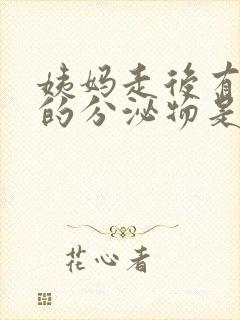 姨妈走后有
的分泌物是
花心者